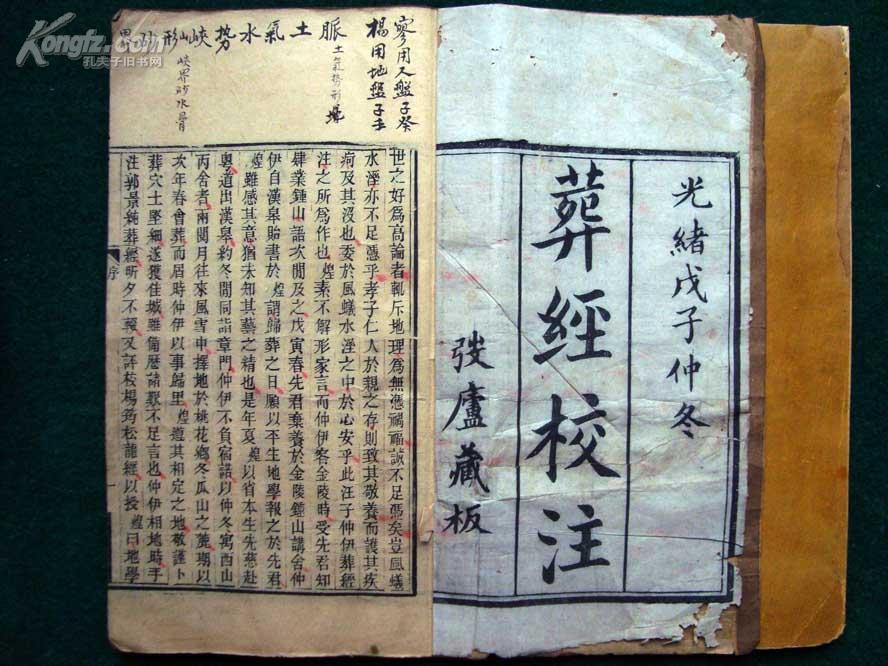 光緒戊子仲冬
葬經校注
弢廬藏板
廖用人盤子癸
楊用地盤子壬
脈土氣水勢峽山形砂界
土氣勢形
峽界砂水骨
世之好為高論者輒斥地理為無憑禍福誠不足憑矣豈風蟻
水溼亦不足憑乎孝子仁人於親之存則致其敬養而護其疾
疴及其沒也委於風蟻水溼之中於心安乎此汪子仲伊葬經
注之所為作也煌素不解形家言而仲伊客金陵時受先君知
肄業鍾山語次閒及之戊寅春先君棄養於金陵鍾山講舍仲
伊自漢皋貽書於煌謂歸葬之日願以平生地學報之於先君
煌雖感其意猶未知其藝之精也是年夏煌以省本生先慈赴
粵道出漢皋約冬閒同詣章門仲伊不負宿諾以仲冬寓西山
丙舍者兩閱月往來風雪中擇地於桃花鄉冬瓜山之麓期以
次年春會葬而屆時仲伊以事歸里煌遵其相定之地敬謹卜
葬穴土堅細遂獲佳城雖葡麿諸家不足言也仲伊相地時手
注郭景純葬經昕夕不輟又評校楊筠松龍經以授煌曰地學
序
一
Kongfz.com
孔夫子旧书网